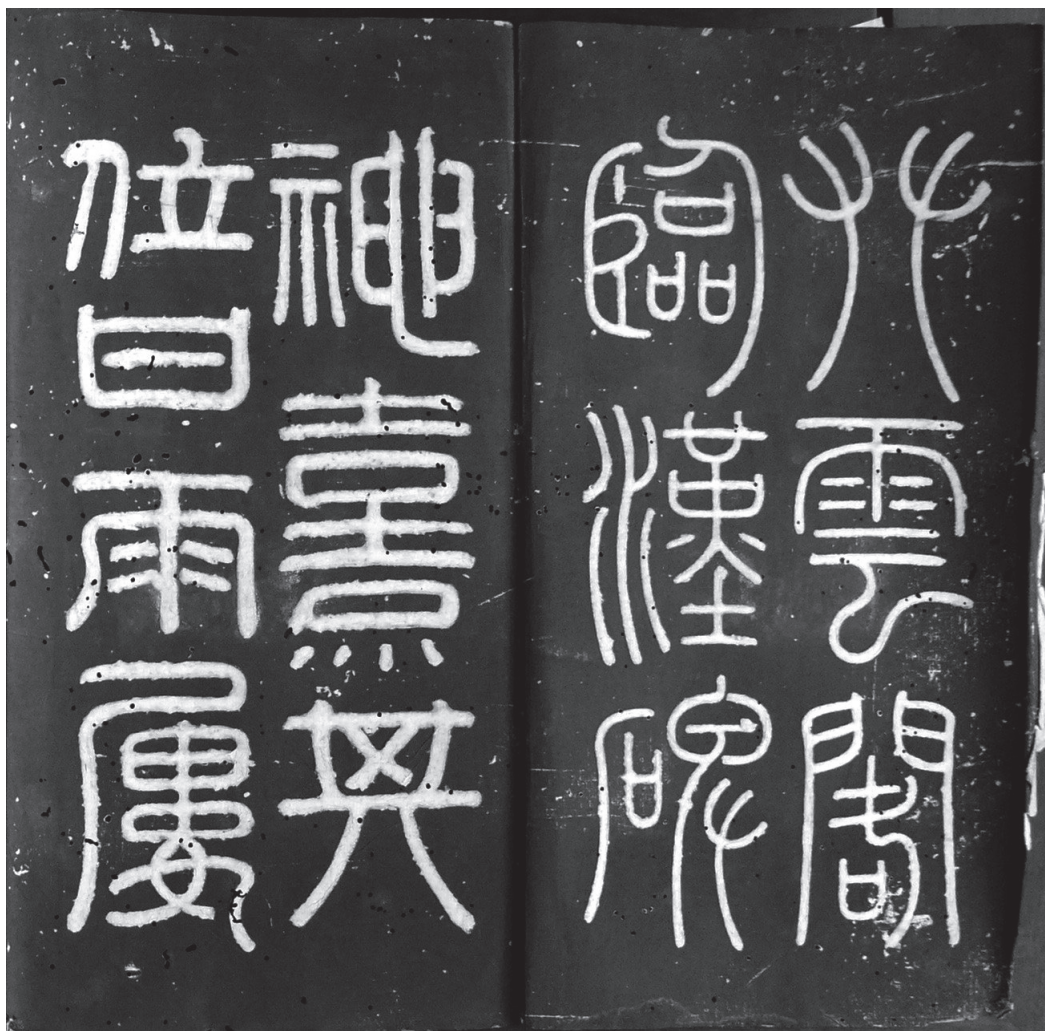 攀雲閣
臨漢碑
神熹其
位甘雨屢